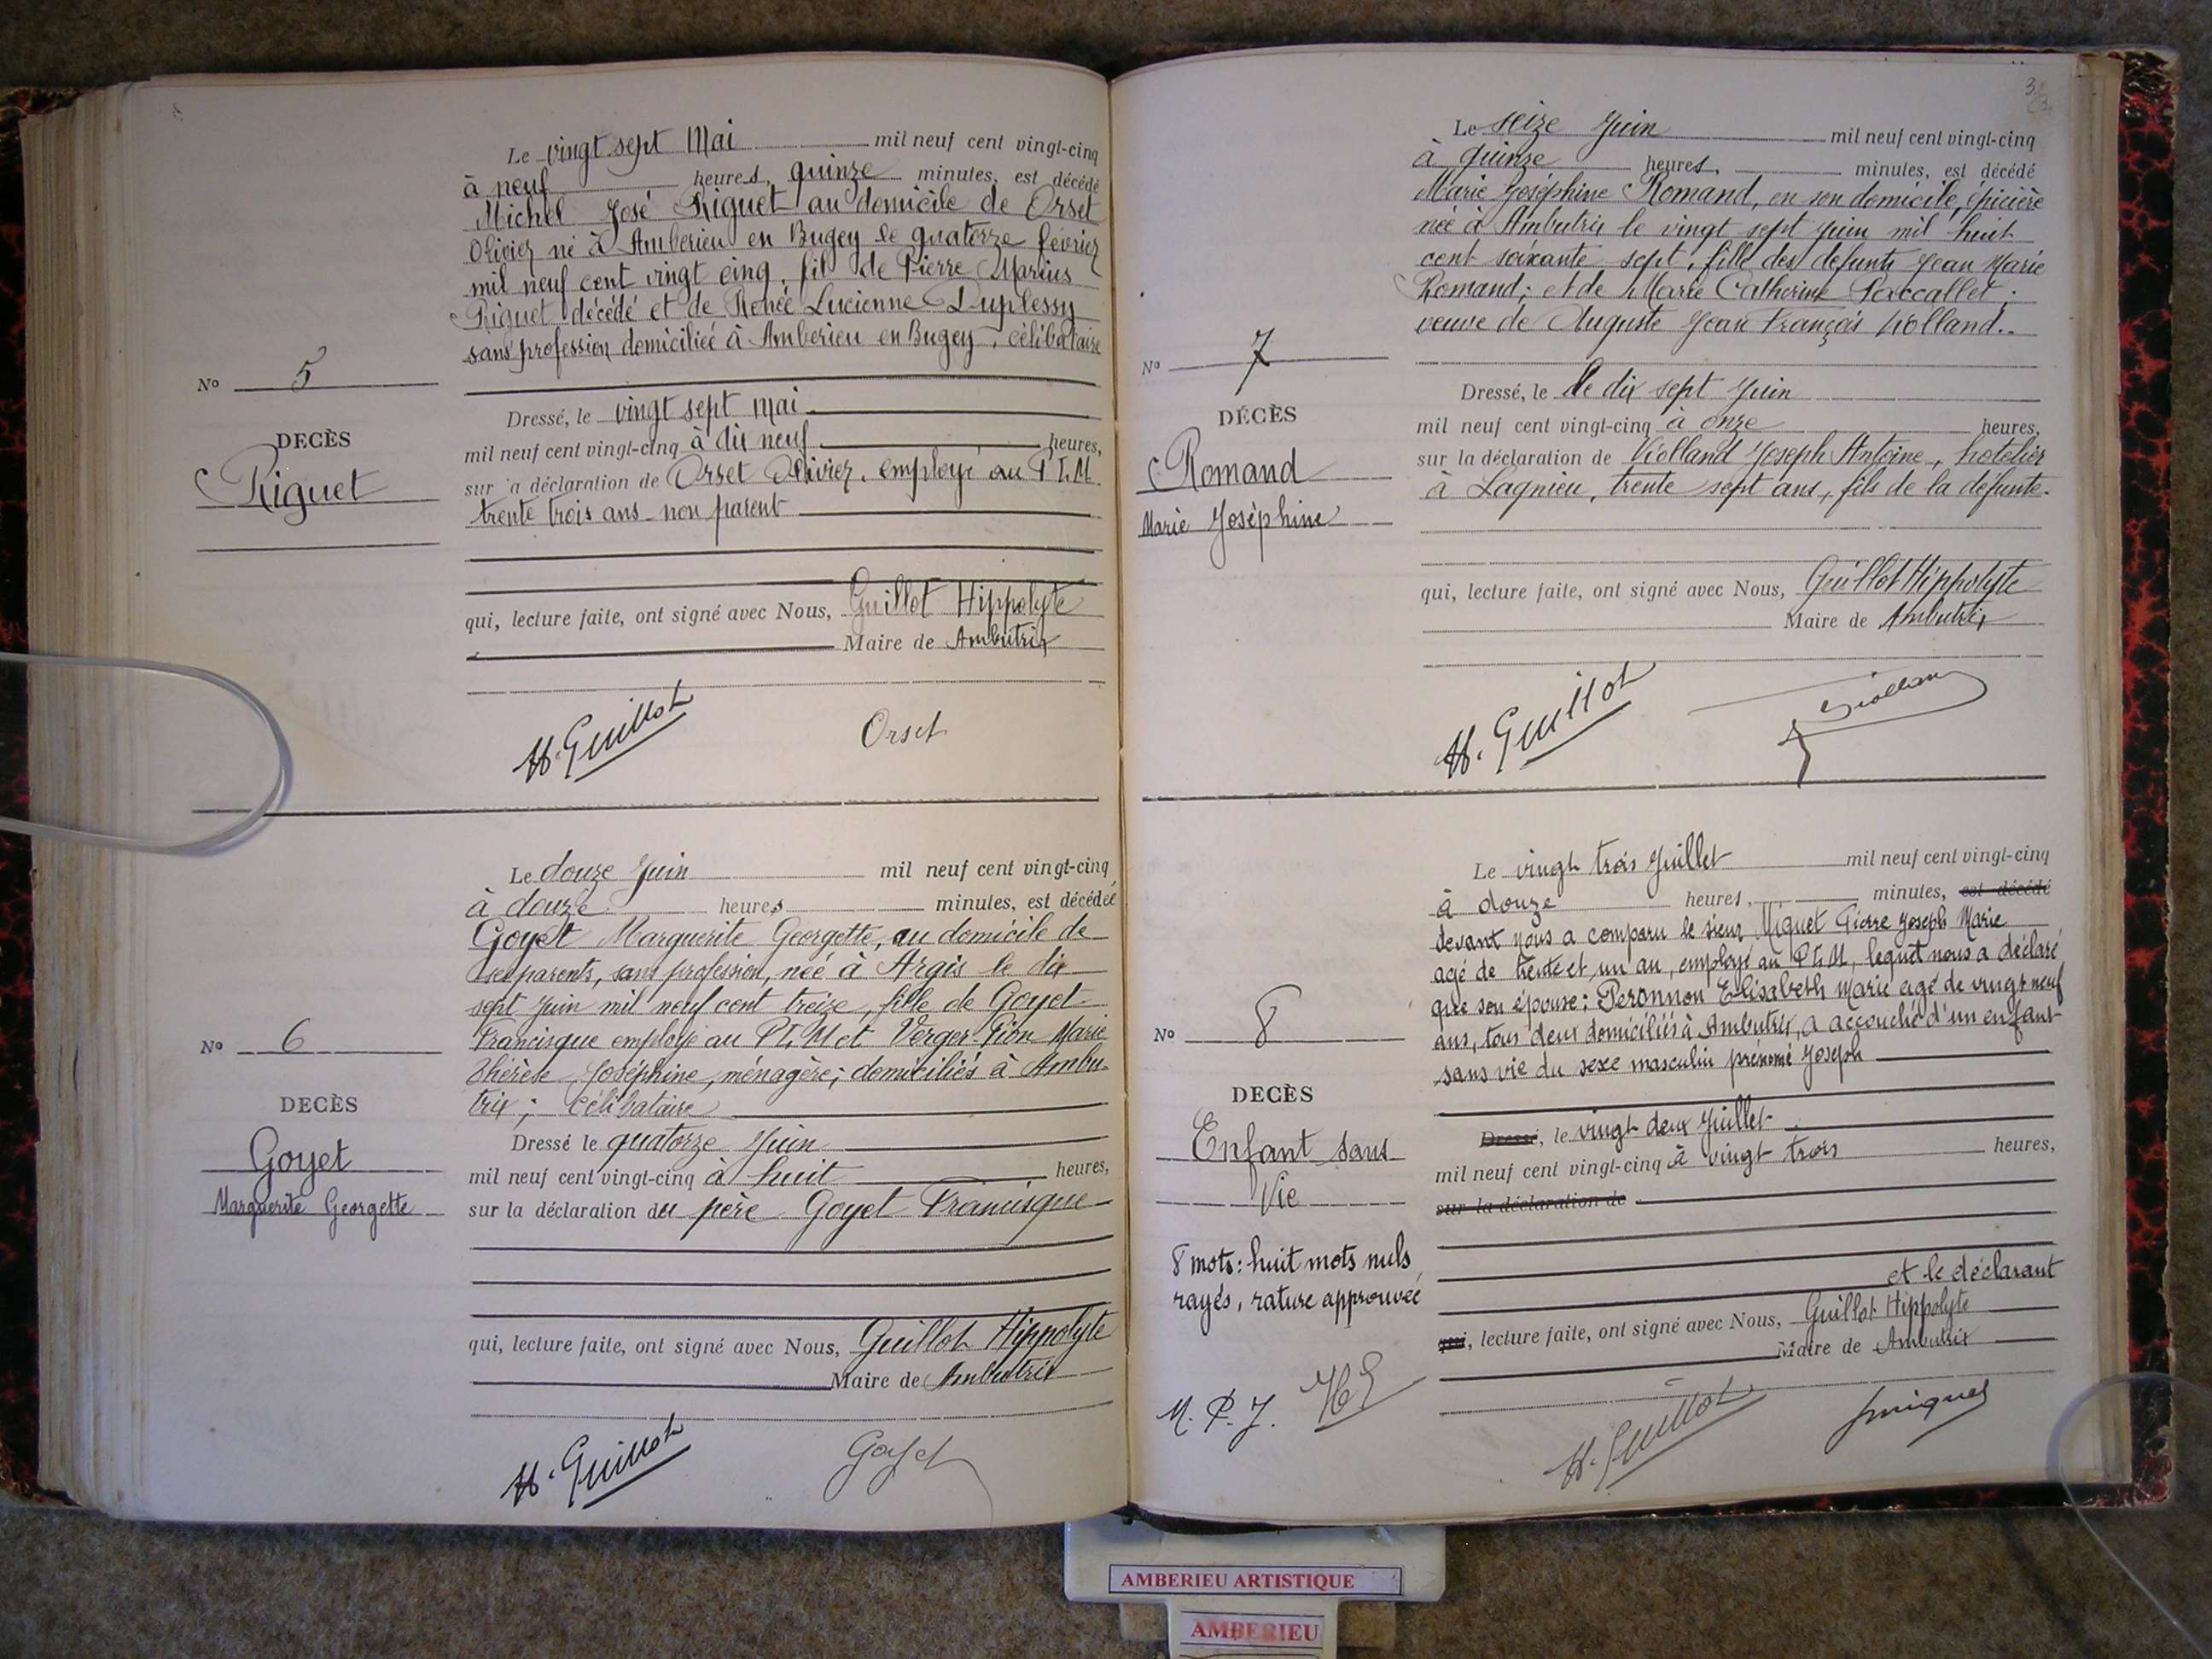 Le vingt sept Mai mil neuf cent vingt-cinq
à neuf heures, quinze minutes, est décédé
Michel José Riguet au domicile de Orset
Olivier né à Amberieu en Bugey le quatorze février
mil neuf cent vingt cinq, fils de Pierre Marius
Riguet décédé et de Renée Lucienne Duplessy
sans profession domiciliée à Amberieu en Bugey, célibataire
No 5
DECÈS
Riguet
Dressé, le vingt sept Mai
mil neuf cent vingt-cinq à dix neuf heures,
sur la déclaration de Orset Olivier, employé au P.L.M.
trente trois ans non parent
qui, lecture faite, ont signé avec Nous, Guillot Hippolyte
Maire de Ambutrix
H. Guillot Orset
Le douze Juin mil neuf cent vingt-cinq
à douze heures minutes, est décédée
Goyet Marguerite Georgette, au domicile de
ses parents, sans profession, née à Argis le dix
sept Juin mil neuf cent treize, fille de Goyet
Francisque employé au P.L.M et Verger-Fion Marie
Thérèse, Joséphine, ménagère; domiciliés à Ambu-
trix; célibataire
No 6
DECÈS
Goyet
Marguerite Georgette
Dressé le quatorze Juin
mil neuf cent vingt-cinq à huit heures,
sur la déclaration du père Goyet Francisque
qui, lecture faite, ont signé avec Nous, Guillot Hippolyte
Maire de Ambutrix
H. Guillot Goyet
Le seize Juin mil neuf cent vingt-cinq
à quinze heures, minutes, est décédé
Marie Joséphine Romand, en son domicile, épicière
née à Ambutrix le vingt sept Juin mil huit
cent soixante sept, fille des defunts Jean Marie
Romand; et de Marie Catherine
veuve de Auguste Jean François Violland..
No 7
DÉCÈS
Romand
Marie Joséphine
Dressé, le le dix sept Juin
mil neuf cent vingt-cinq à onze heures,
sur la déclaration de Violland Joseph Antoine, hotelier
à Lagnieu, trente sept ans, fils de la défunte.
qui, lecture faite, ont signé avec Nous, Guillot Hippolyte
Maire de Ambutrix
H. Guillot Violland
Le vingt trois Juillet mil neuf cent vingt-cinq
à douze heures, minutes, est décédé
devant nous a comparu le sieur Miguet Pierre Joseph Marie
agé de trente et un an, employé au P.L.M, lequel nous a déclaré
que son épouse; Peronnon Elisabeth Marie agé de vingt neuf
ans, tous deux domiciliés à Ambutrix, a accouché d'un enfant
sans vie du sexe masculin prénomé Joseph
No 8
DECÈS
Enfant sans
Vie
Dressé, le vingt deux Juillet
mil neuf cent vingt-cinq à vingt trois heures,
sur la déclaration de
8 mots: huit mots nuls
rayés, rature approuvée
et le déclarant
qui, lecture faite, ont signé avec Nous, Guillot Hippolyte
Maire de Ambutrix
M. P. J. HG
H. Guillot Jmiguet
AMBERIEU ARTISTIQUE
AMBERIEU